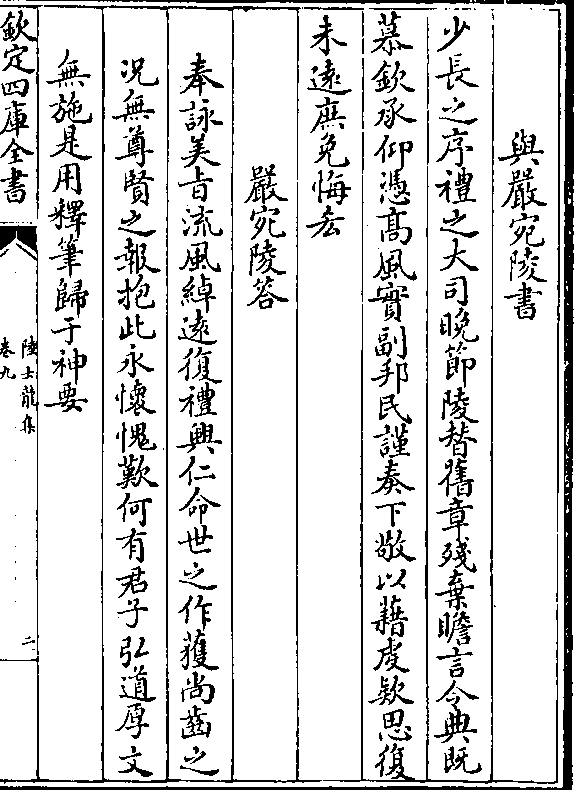 與嚴宛陵書
少長之序禮之大司晚節陵替舊章殘棄瞻言令典既
慕欽承仰憑高風實副邦民謹奏下敬以藉虔欵思復
未遠庶免悔吝
嚴宛陵答
奉詠美旨流風綽遠復禮興仁命世之作獲尚齒之
况無尊賢之報抱此永懷愧歎何有君子弘道厚文
無施是用釋筆歸于神要
欽定四庫全書
陸士龍集
卷九
二